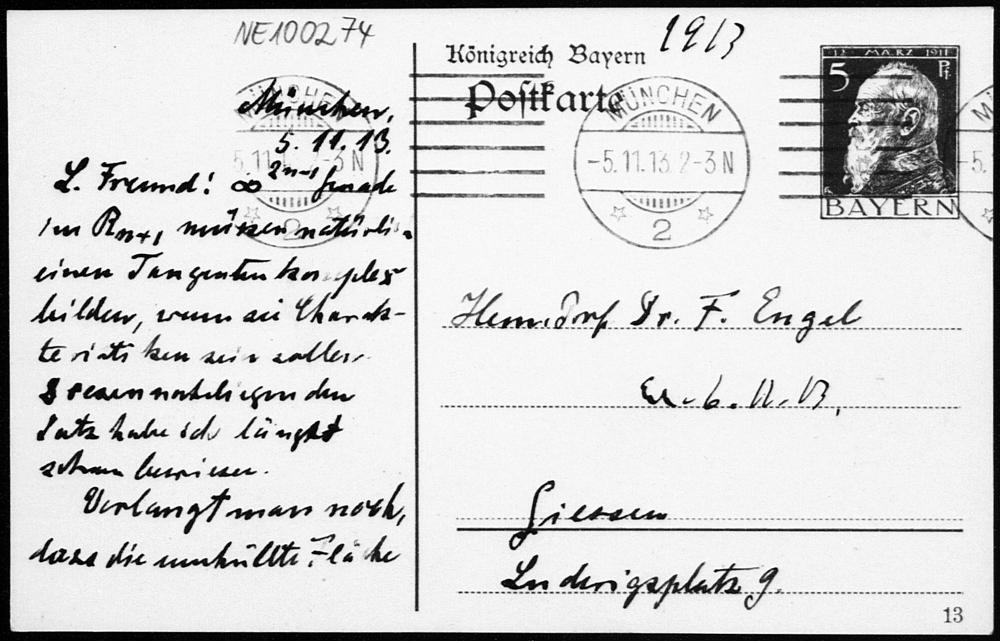 NE100274
München,
5. 11. 13.
L. Freund! ∞ 2n-1 Gerade
im Rn+1 müssen natürlich
einen Tangentenkomplex
bilden, wenn sie Charak-
teristiken sein sollen.
Diesen naheliegenden
Satz habe ich längst
schon bewiesen.
Verlangt man noch,
dass die umhüllte Fläche
1913
Königreich Bayern
Postkarte
MÜNCHEN
-5.11.13 2-3 N
2
12. MÄRZ 1911
5 Pf.
BAYERN
Herrn Prof. Dr. F. Engel
Giessen
Ludwigsplatz 9.
13